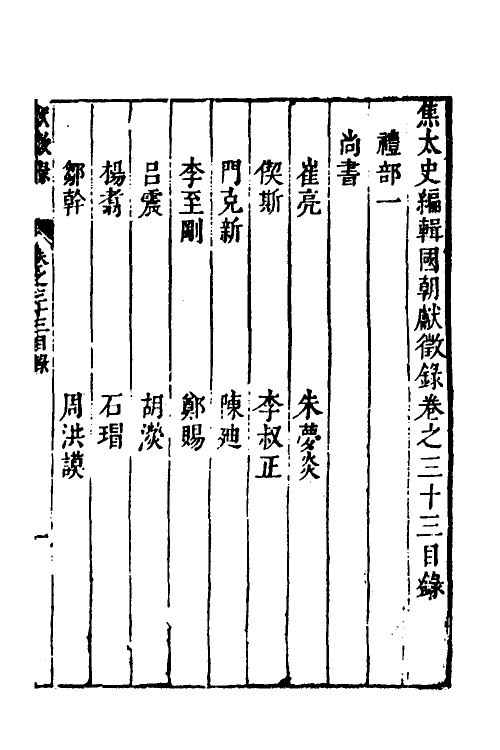 焦太史編輯國朝獻徵錄卷之三十三目錄
禮部一
尚書
崔亮 朱夢炎
偰斯 李叔正
門克新 陳迪
李至剛 鄭賜
呂震 胡濙
楊翥 石瑁
鄒幹 周洪謨
獻徵錄 卷之三十三目錄 一